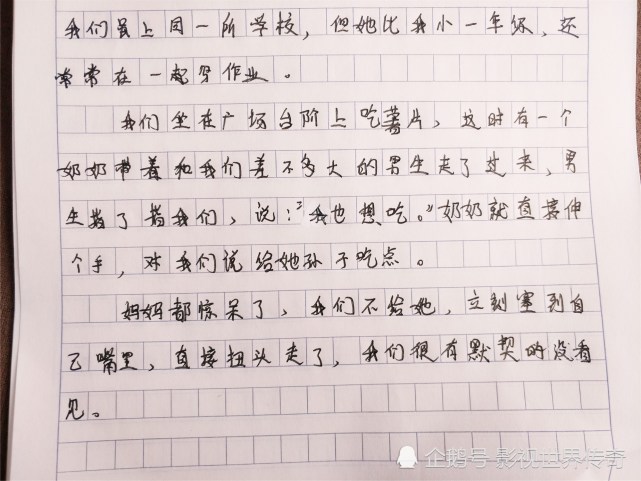 我们虽上同一所学校，但她比我小一年级，还
常常在一起写作业。
我们坐在广场台阶上吃薯片，这时有一个
奶奶带着和我们差不多大的男生走了过来，男
生指了指我们，说："我也想吃。"奶奶就直接伸
个手，对我们说给她孙子吃点。
妈妈都惊呆了，我们不给她，立刻塞到自
己嘴里，直接扭头走了，我们很有默契的没看
见。
企鹅号 影视世界传奇